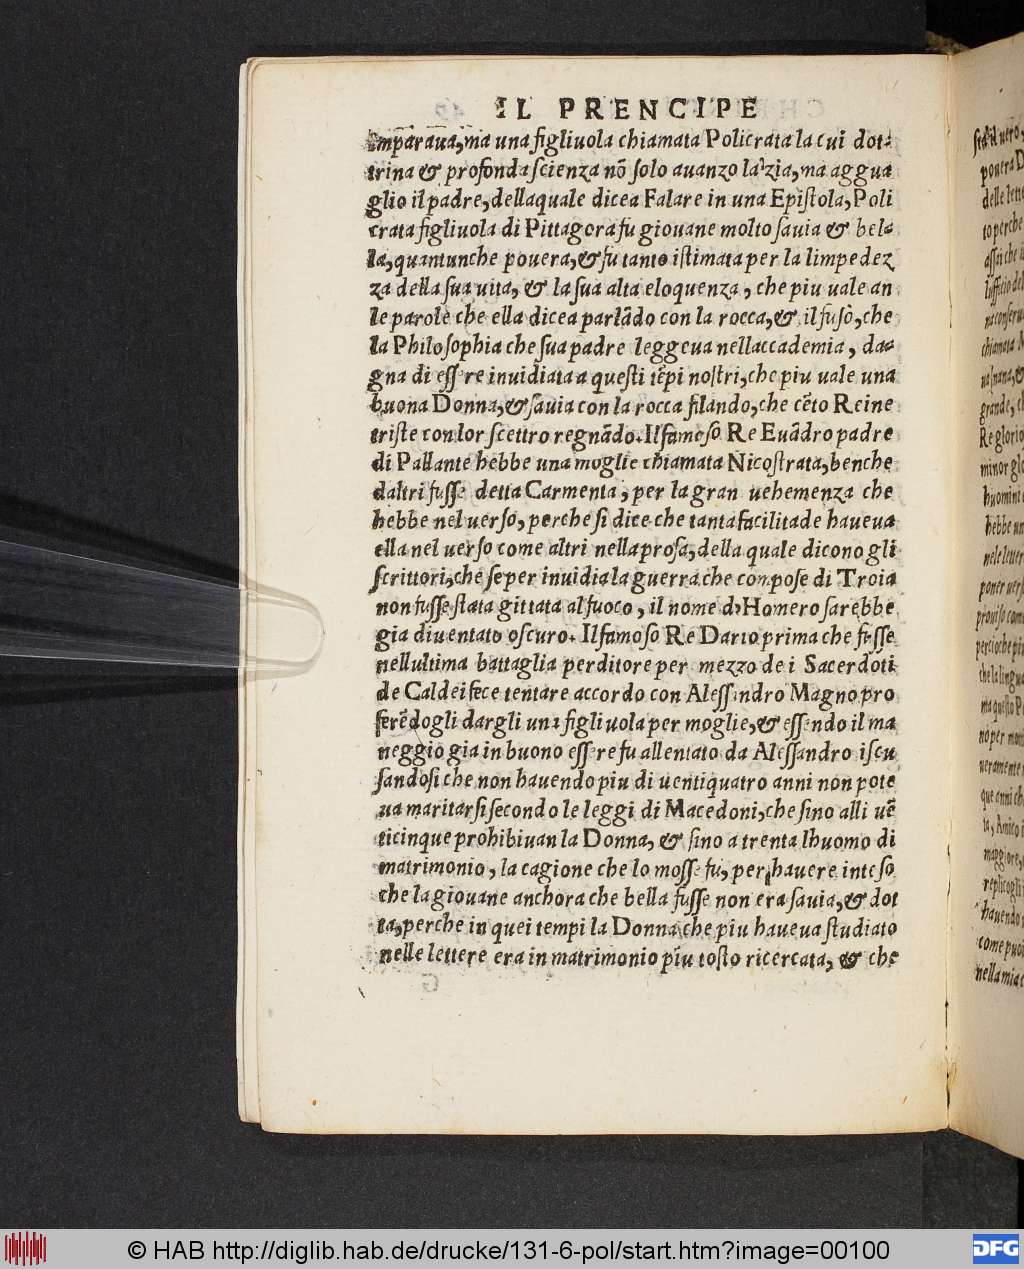 IL PRENCIPE
imparaua, ma una figliuola chiamata Policrata la cui dot-
trina & profonda scienza nõ solo auanzo la zia, ma aggua
glio il padre, dellaquale dicea Falare in una Epistola, Poli
crata figliuola di Pittagora fu giouane molto sauia & bel-
la, quantunche pouera, & fu tanto istimata per la limpedez
za della sua uita, & la sua alta eloquenza, che piu uale an
le parole che ella dicea parlãdo con la rocca, & il fuso, che
la Philosophia che sua padre leggeua nellaccademia, da-
gna di essere inuidiata a questi tẽpi nostri, che piu uale una
buona Donna, & sauia con la rocca filando, che cẽto Reine
triste con lor scettro regnãdo. Il famoso Re Euãdro padre
di Pallante hebbe una moglie chiamata Nicostrata, benche
daltri fusse detta Carmenta, per la gran uehemenza che
hebbe nel uerso, perche si dice che tanta facilitade haueua
ella nel uerso come altri nella prosa, della quale dicono gli
scrittori, che se per inuidia la guerra che compose di Troia
non fusse stata gittata al fuoco, il nome d'Homero sarebbe
gia diuentato oscuro. Il famoso Re Dario prima che fusse
nellultima battaglia perditore per mezzo de i Sacerdoti
de Caldei fece tentare accordo con Alessandro Magno pro
ferẽdogli dargli una figliuola per moglie, & essendo il ma
neggio gia in buono essere fu allentato da Alessandro iscu
sandosi che non hauendo piu di uentiquatro anni non pote
ua maritarsi secondo le leggi di Macedoni, che sino alli uẽ
ticinque prohibiuan la Donna, & sino a trenta lhuomo di
matrimonio, la cagione che lo mosse fu, per hauere inteso
che la giouane anchora che bella fusse non era sauia, & dot
ta, perche in quei tempi la Donna che piu haueua studiato
nelle lettere era in matrimonio piu tosto ricercata, & che
© HAB http://diglib.hab.de/drucke/131-6-pol/start.htm?image=00100
DFG